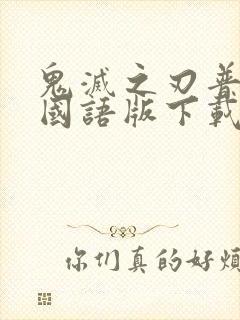 鬼滅之刃普
國語版下載
你们真的好煩